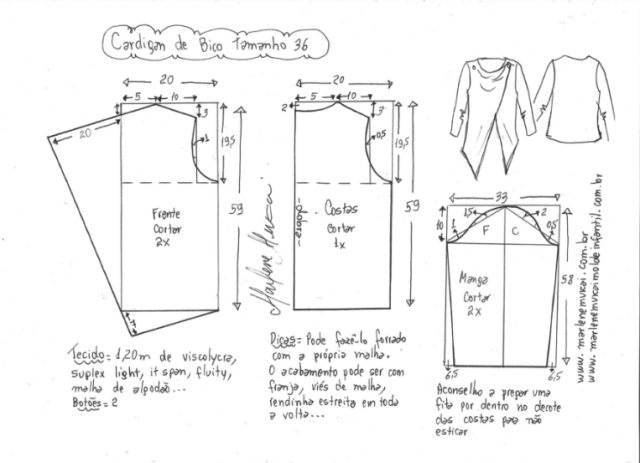 Cardigan de Bico Tamanho 36
20
5 10
3
20
1
19,5
59
Frente
Cortar
2x
20
2
5 10
3
0,5
19,5
59
dobra
Costas
cortar
1x
Marlene Mukai
33
10
1 1,5 2 0,5
F C
58
Manga
Cortar
2x
6,5 6,5
www.marlenemukai.com.br
www.marlenemukaimoldeinfantil.com.br
Tecido = 1,20m de viscolycra,
suplex light, it span, fluity,
malha de algodão...
Botões = 2
Dicas = Pode fazê-lo forrado
com a própria malha.
O acabamento pode ser com
franja, viés de malha,
rendinha estreita em toda
a volta...
Aconselho a prepor uma
fita por dentro no decote
das costas paa não
esticar